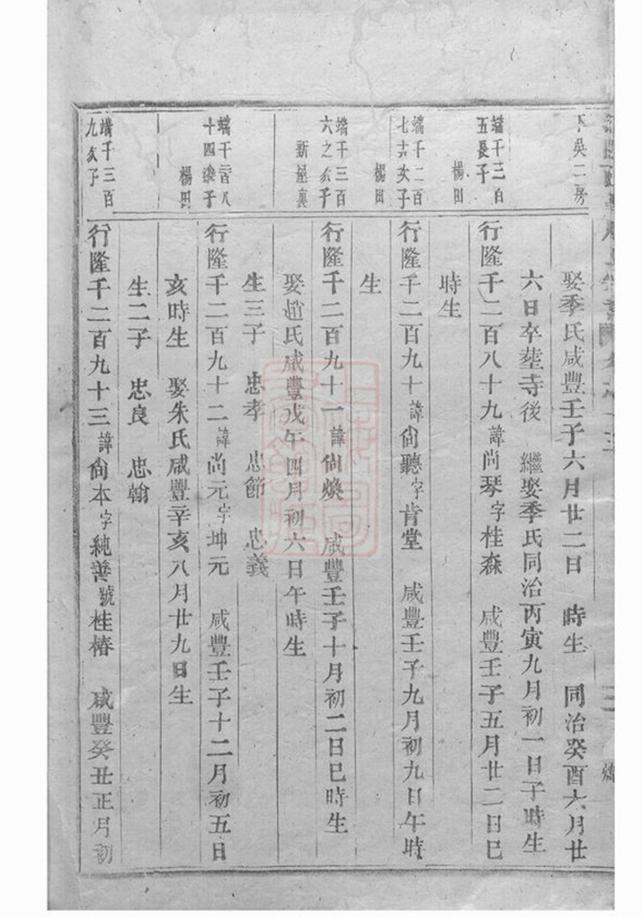 下吳二房
娶季氏咸豐壬子六月廿二日　時生　同治癸酉六月廿
六日卒塟寺後　繼娶季氏同治丙寅九月初一日子時生
端千三百
五長子
楊田
行隆千二百八十九諱尚琴字桂森　咸豐壬子五月廿二日巳
時生
端千二百
七十次子
楊田
行隆千二百九十諱尙聽字肯堂　咸豐壬子九月初九日午時
生
端千三百
六之次子
新屋裏
行隆千二百九十一諱尙煥　咸豐壬子十月初二日巳時生
娶趙氏咸豐戊午四月初六日午時生
生三子　忠孝　忠節　忠義
端千二百八
十四繼子
楊田
行隆千二百九十二諱尚元字坤元　咸豐壬子十二月初五日
亥時生　娶朱氏咸豐辛亥八月廿九日生
生二子　忠良　忠翰
端千三百
九次子
行隆千二百九十三諱尙本字純善號桂椿　咸豐癸丑正月初